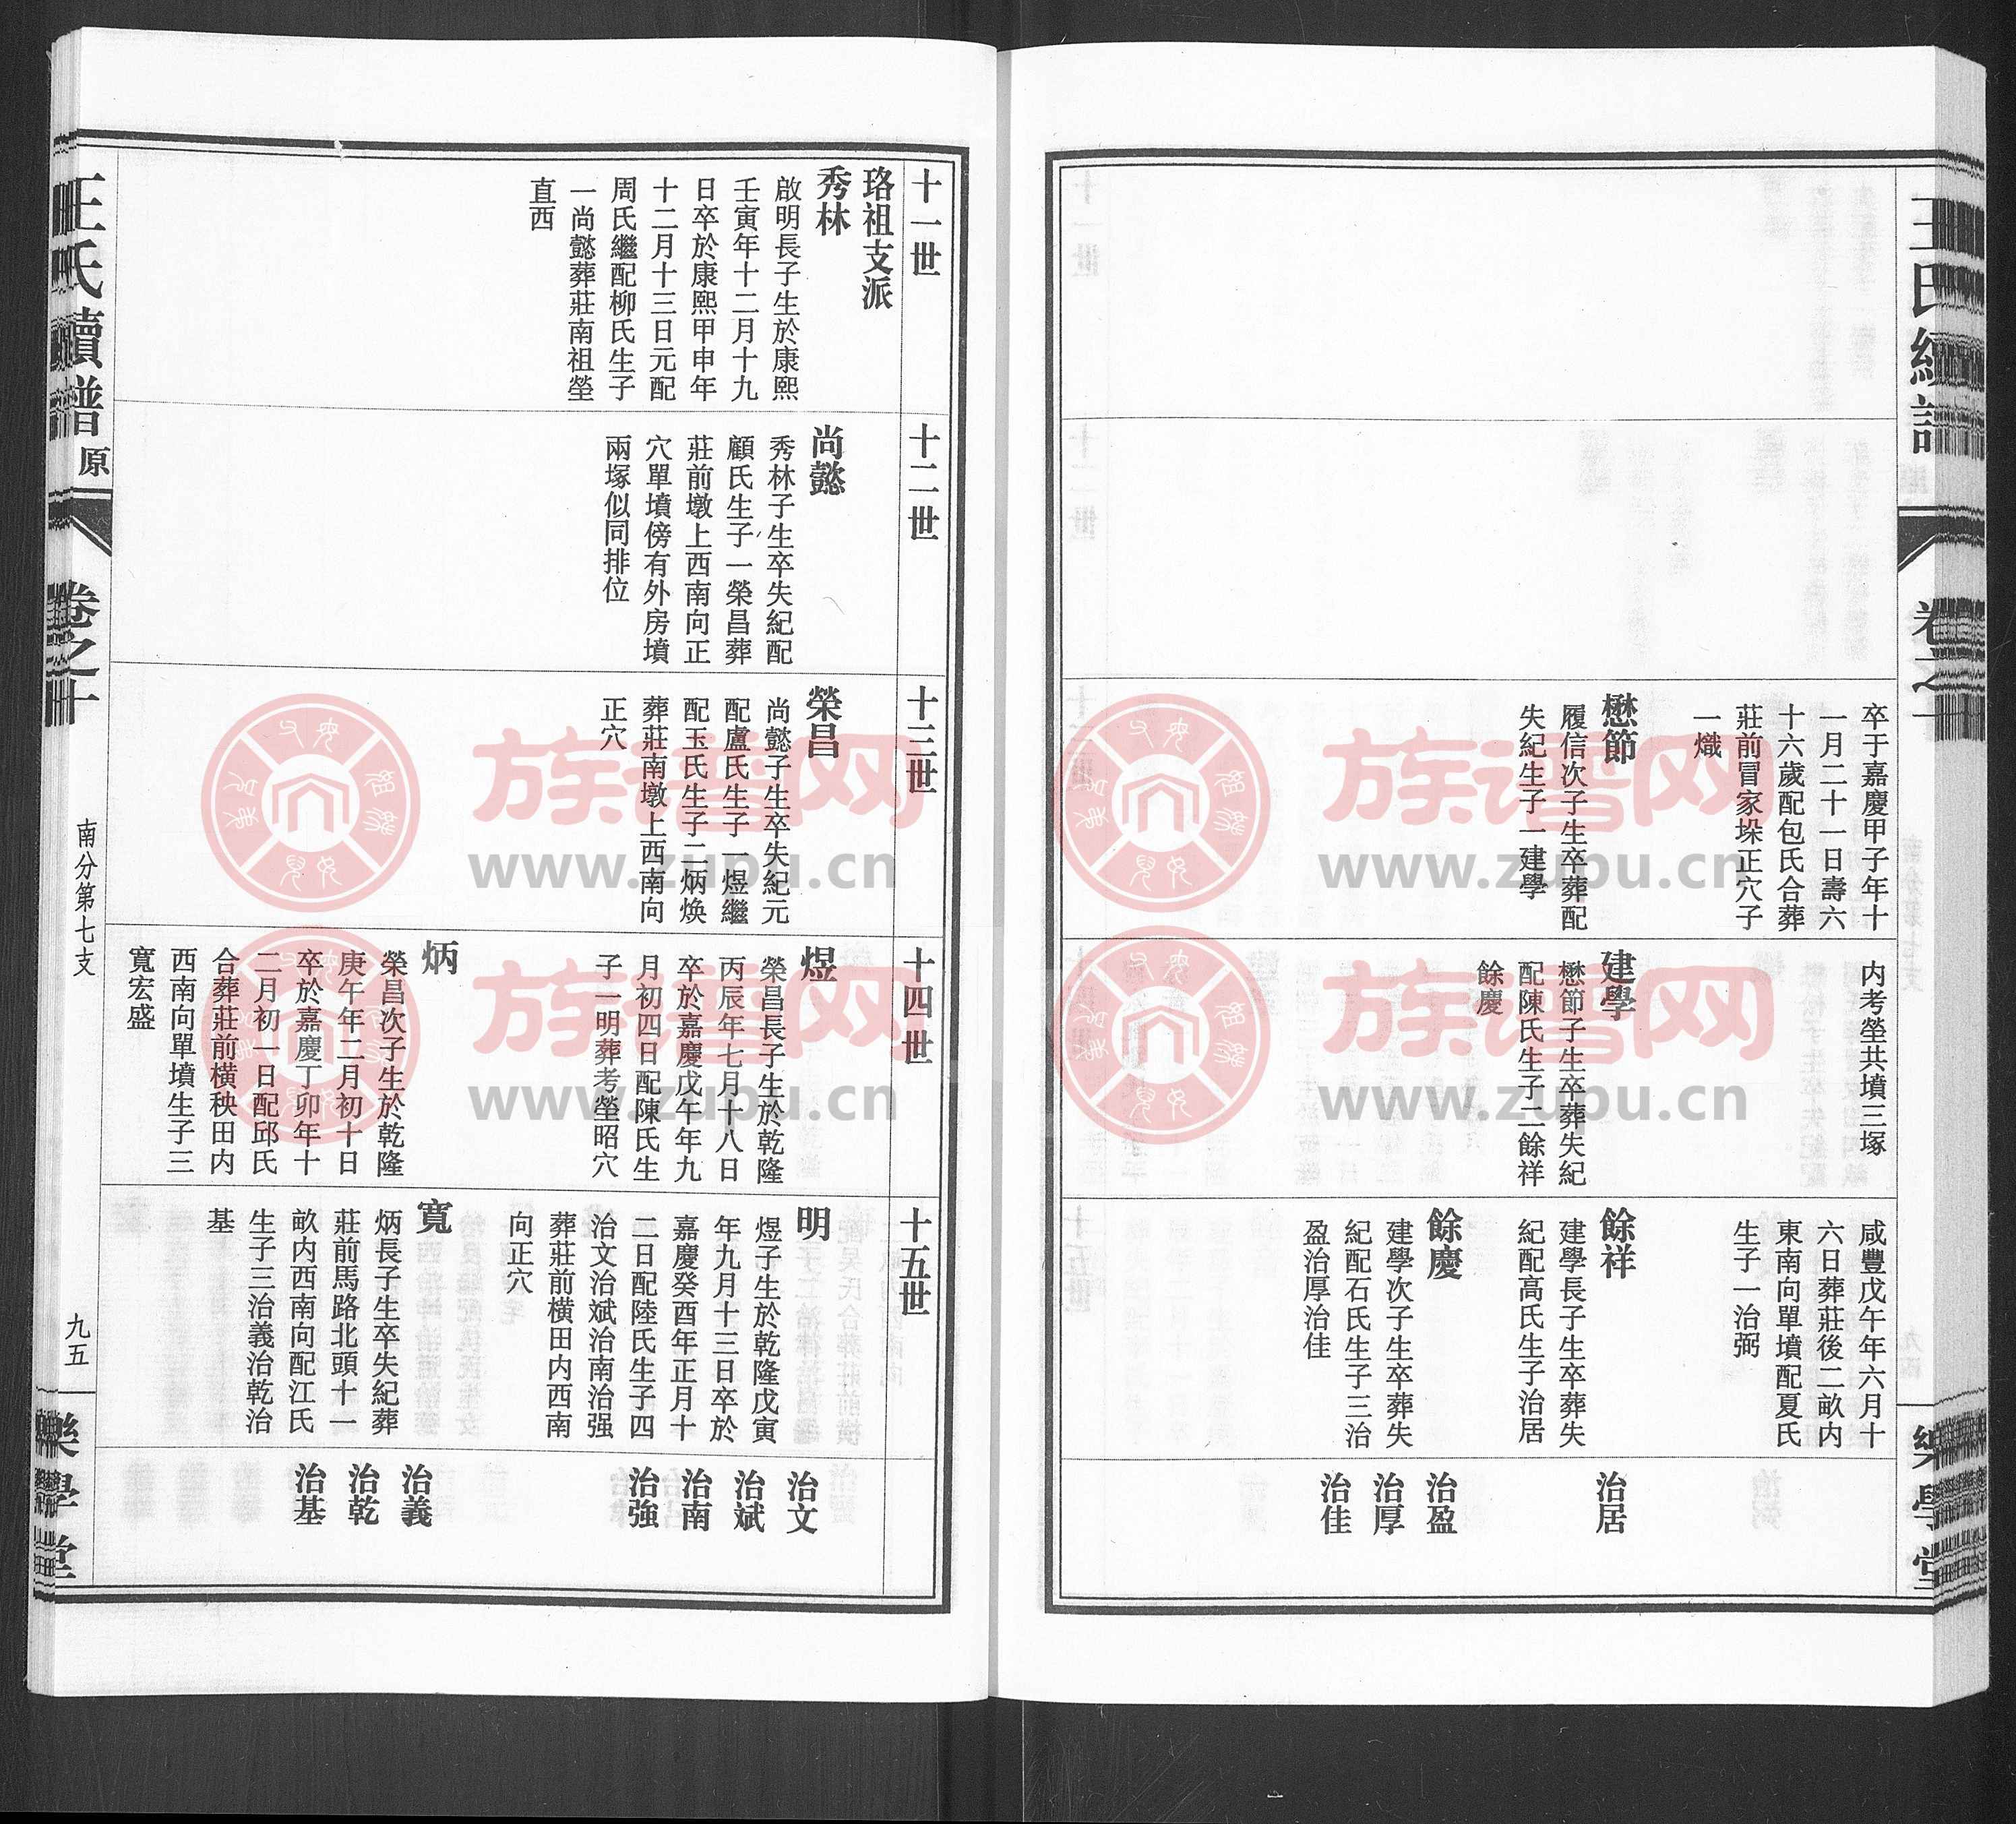 卒于嘉慶甲子年十
一月二十一日壽六
十六歲配包氏合葬
莊前冒家垛正穴子
一熾
懋節
履信次子生卒葬配
失紀生子一建學
内考塋共墳三塚
建學
懋節子生卒葬失紀
配陳氏生子二餘祥
餘慶
咸豐戊午年六月十
六日葬莊後二畝内
東南向單墳配夏氏
生子一治弼
餘祥
建學長子生卒葬失
紀配高氏生子治居
餘慶
建學次子生卒葬失
紀配石氏生子三治
盈治厚治佳
治居
治盈
治厚
治佳
十一世
珞祖支派
秀林
啟明長子生於康熙
壬寅年十二月十九
日卒於康熙甲申年
十二月十三日元配
周氏繼配柳氏生子
一尚懿葬莊南祖塋
直西
十二世
尚懿
秀林子生卒失紀配
顧氏生子一榮昌葬
莊前墩上西南向正
穴單墳傍有外房墳
兩塚似同排位
十三世
榮昌
尚懿子生卒失紀元
配盧氏生子一煜繼
配玉氏生子二炳焕
葬莊南墩上西南向
正穴
十四世
煜
榮昌長子生於乾隆
丙辰年七月十八日
卒於嘉慶戊午年九
月初四日配陳氏生
子一明葬考塋昭穴
炳
榮昌次子生於乾隆
庚午年二月初十日
卒於嘉慶丁卯年十
二月初一日配邱氏
合葬莊前横秧田内
西南向單墳生子三
寬宏盛
十五世
明
煜子生於乾隆戊寅
年九月十三日卒於
嘉慶癸酉年正月十
二日配陸氏生子四
治文治斌治南治强
葬莊前横田内西南
向正穴
寬
炳長子生卒失紀葬
莊前馬路北頭十一
畝内西南向配江氏
生子三治義治乾治
基
治文
治斌
治南
治強
治義
治乾
治基
王氏續譜
原
卷之十
南分第七支
九五
樂學堂
族谱网
www.zupu.cn
族谱网
www.zupu.cn
族谱网
www.zupu.cn
族谱网
www.zupu.cn